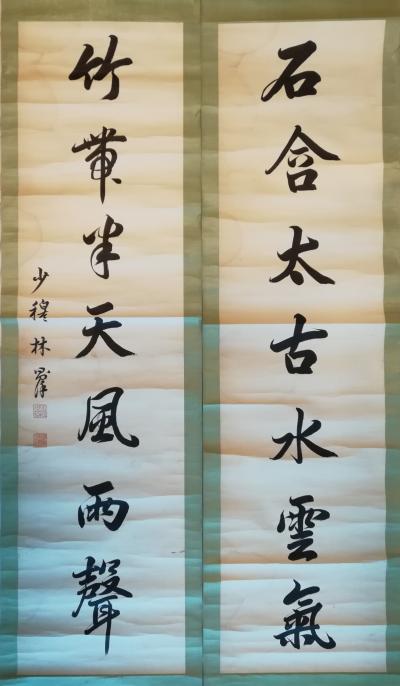 石含太古水雲氣
竹帶半天風雨聲
少穆林